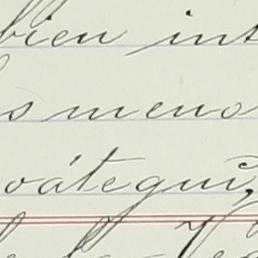 bien int
s meno
oátegui,